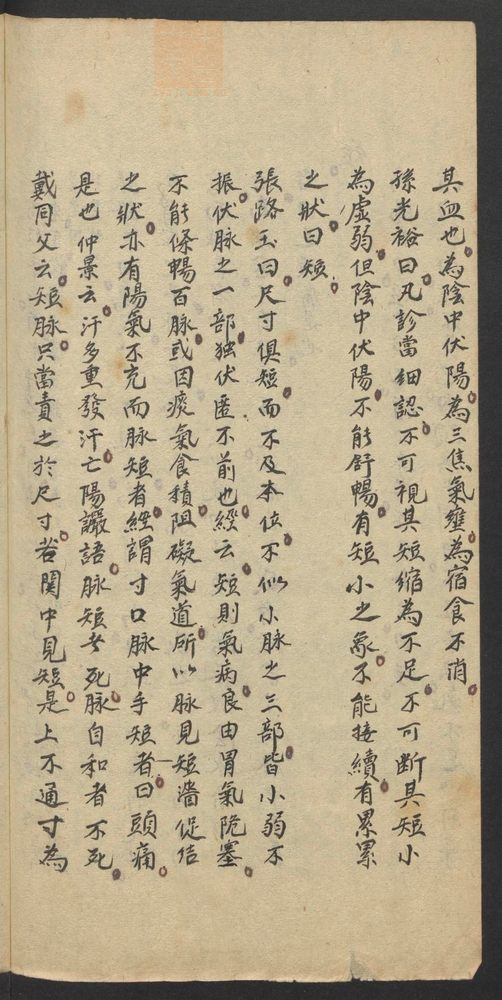 其血也為陰中伏陽為三焦氣壅為宿食不消
孫光裕曰凡診當細認不可視其短縮為不足不可断其短小
為虛弱但陰中伏陽不能舒暢有短小之象不能接續有累累
之狀曰短
張路玉曰尺寸俱短而不及本位不似小脉之三部皆小弱不
振伏脉之一部独伏匿不前也經云短則氣病良由胃氣阨塞
不能條暢百脉或因痰氣食積阻礙氣道所以脉見短濇促结
之狀亦有陽氣不充而脉短者經謂寸口脉中手短者曰頭痛
是也仲景云汗多重發汗亡陽讝語脉短者死脉自和者不死
戴同父云短脉只當責之於尺寸若関中見短是上不通寸為